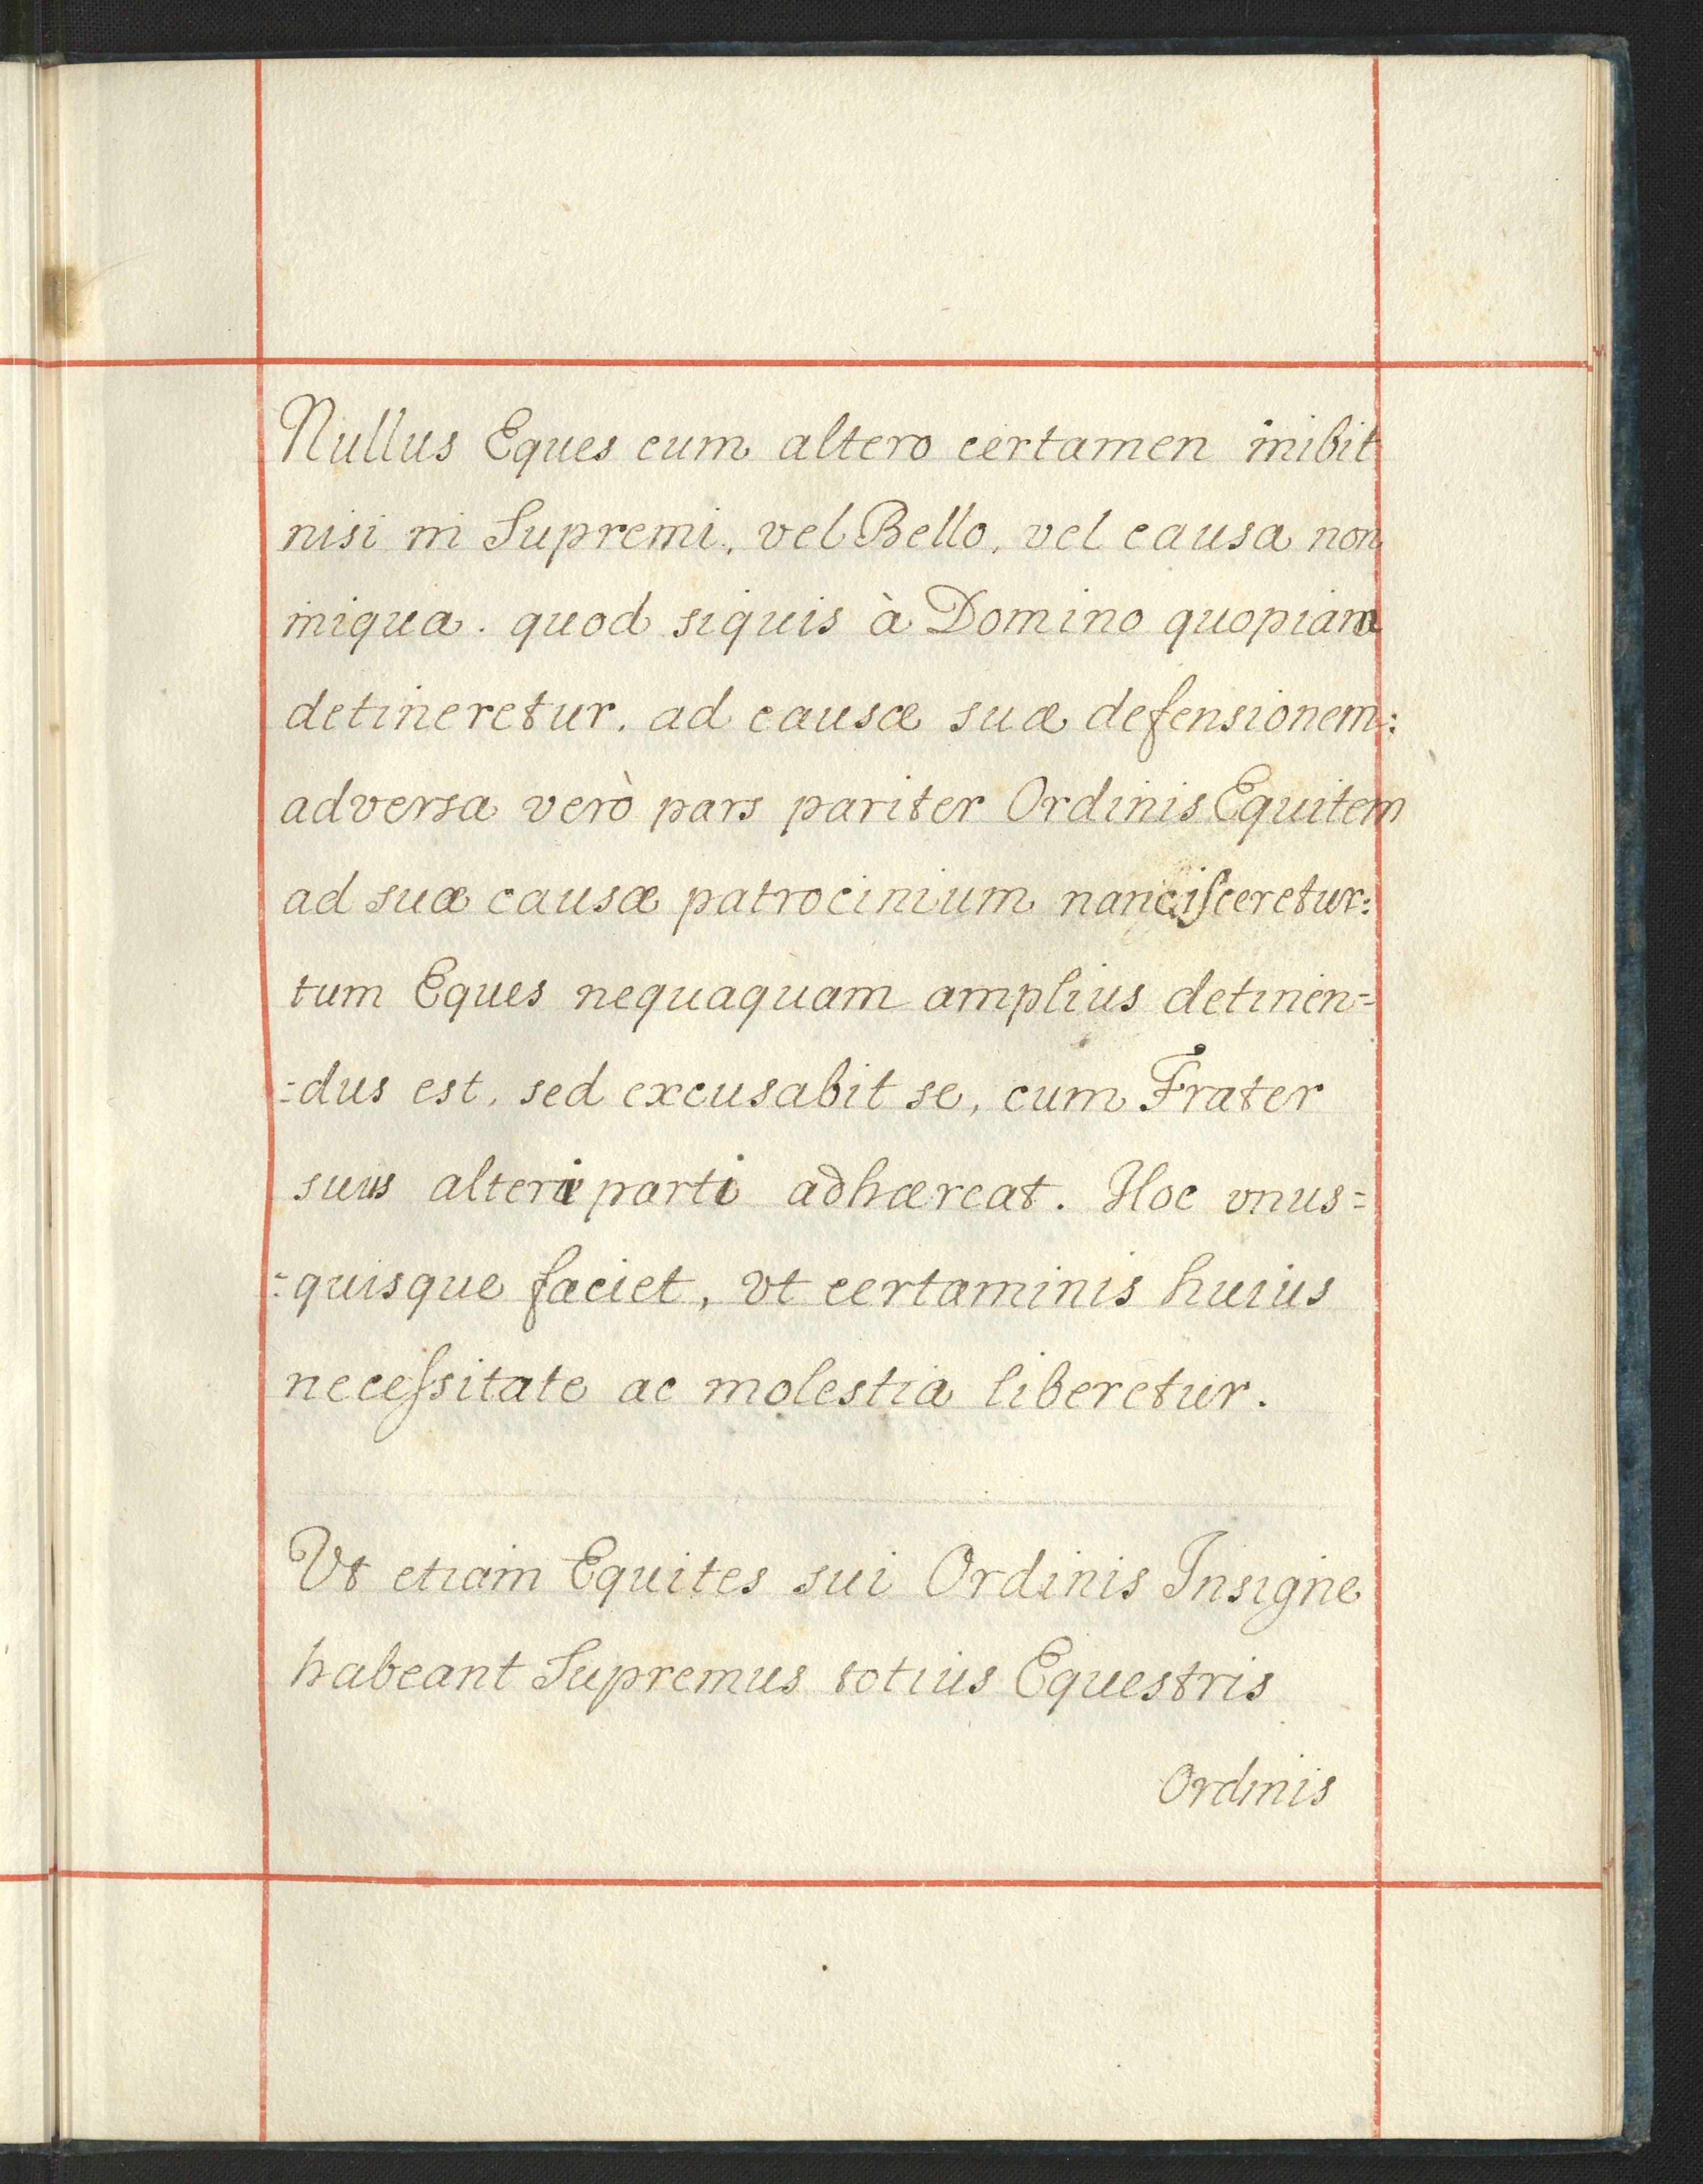 Nullus Eques cum altero certamen inibit
nisi in Supremi, vel Bello, vel causa non
iniqua. quod siquis à Domino quopiam
detineretur, ad causæ suæ defensionem:
adversa verò pars pariter Ordinis Equitem
ad suæ causæ patrocinium nanciſceretur:
tum Eques nequaquam amplius detinen=
=dus est, sed excusabit se, cum Frater
suus alteri parti adhæreat. Hoc vnus=
=quisque faciet, vt certaminis huius
neceſsitate ac molestia liberetur.
Vt etiam Equites sui Ordinis Insigne
habeant Supremus totius Equestris
Ordinis